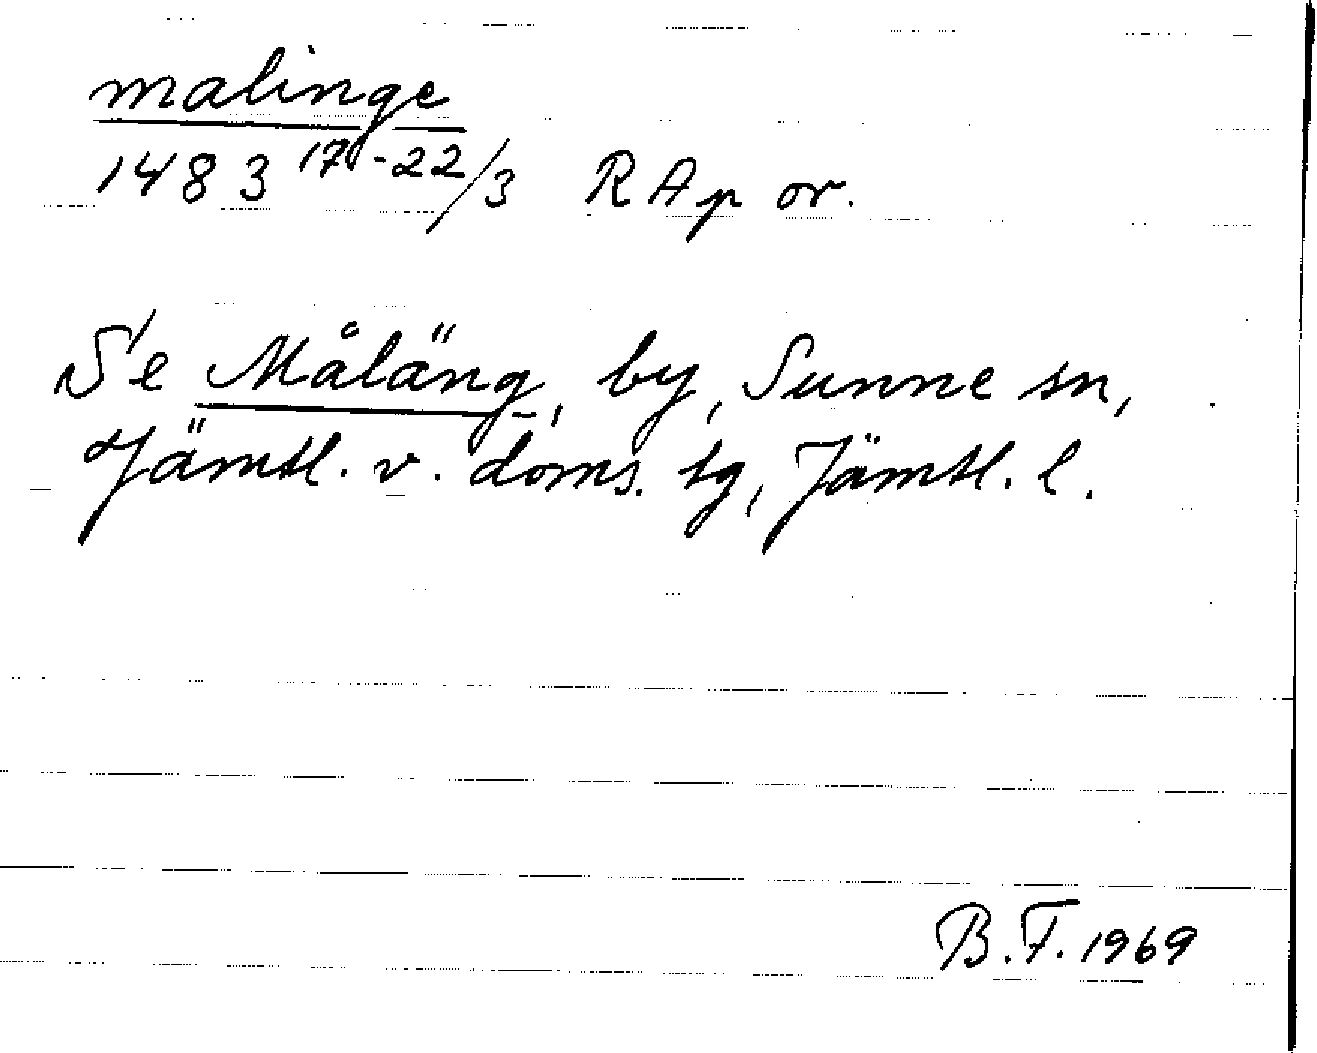 malinge
1483 17-22/3 RAp or.
Se Måläng, by, Sunne sn,
Jämtl. v. doms. tg, Jämtl. l.
B.F. 1969